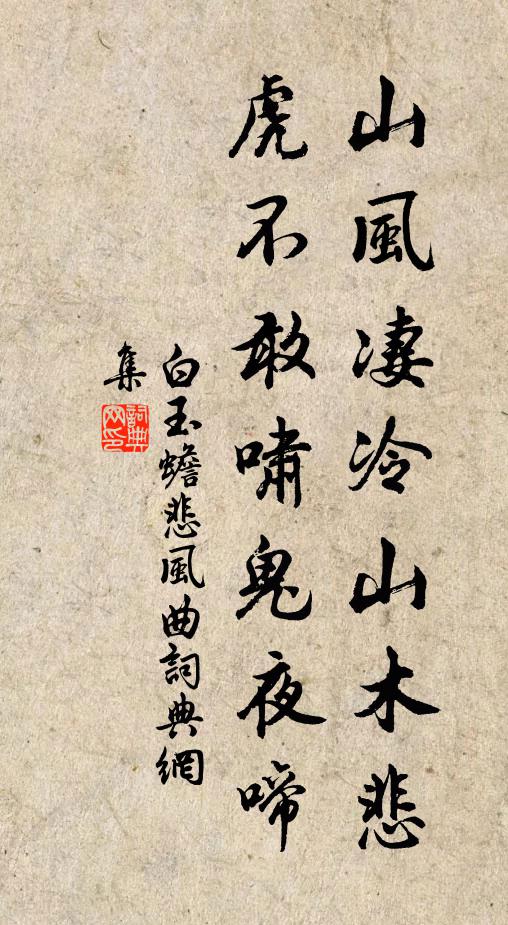 山風凄冷山木悲
虎不敢嘯鬼夜啼
白玉蟾悲風曲詞典網
集
詞典
网印